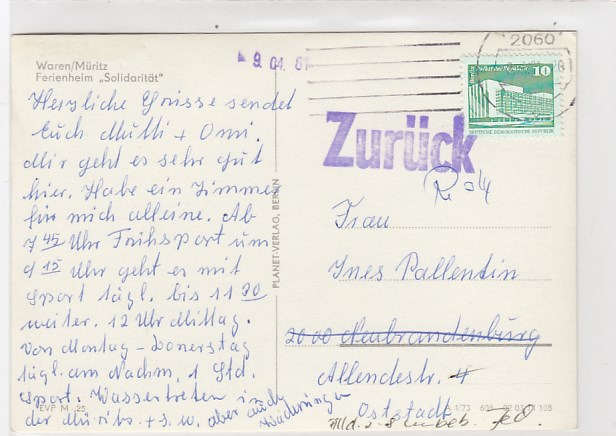 Waren/Müritz
Ferienheim „Solidarität"
Herzliche Grüsse sendet
Euch Mutti + Omi.
Mir geht es sehr gut
hier. Habe ein Zimmer
für mich alleine. Ab
7 45 Uhr Frühsport um
9 15 Uhr geht es mit
Sport tägl. bis 11 30
weiter. 12 Uhr Mittag.
Von Montag – Donerstag
tägl. am Nachm. 1 Std.
Sport. Wassertreten in
der Müritz. + s. w. aber auch
Wanderungen
EVP M -,25
PLANET-VERLAG, BERLIN
9. 04. 81
2060
10
DEUTSCHE DEMOKRATISCHE REPUBLIK
Zurück
Frau
Ines Pallentin
2000 Neubrandenburg
Allendestr. 4
Oststadt